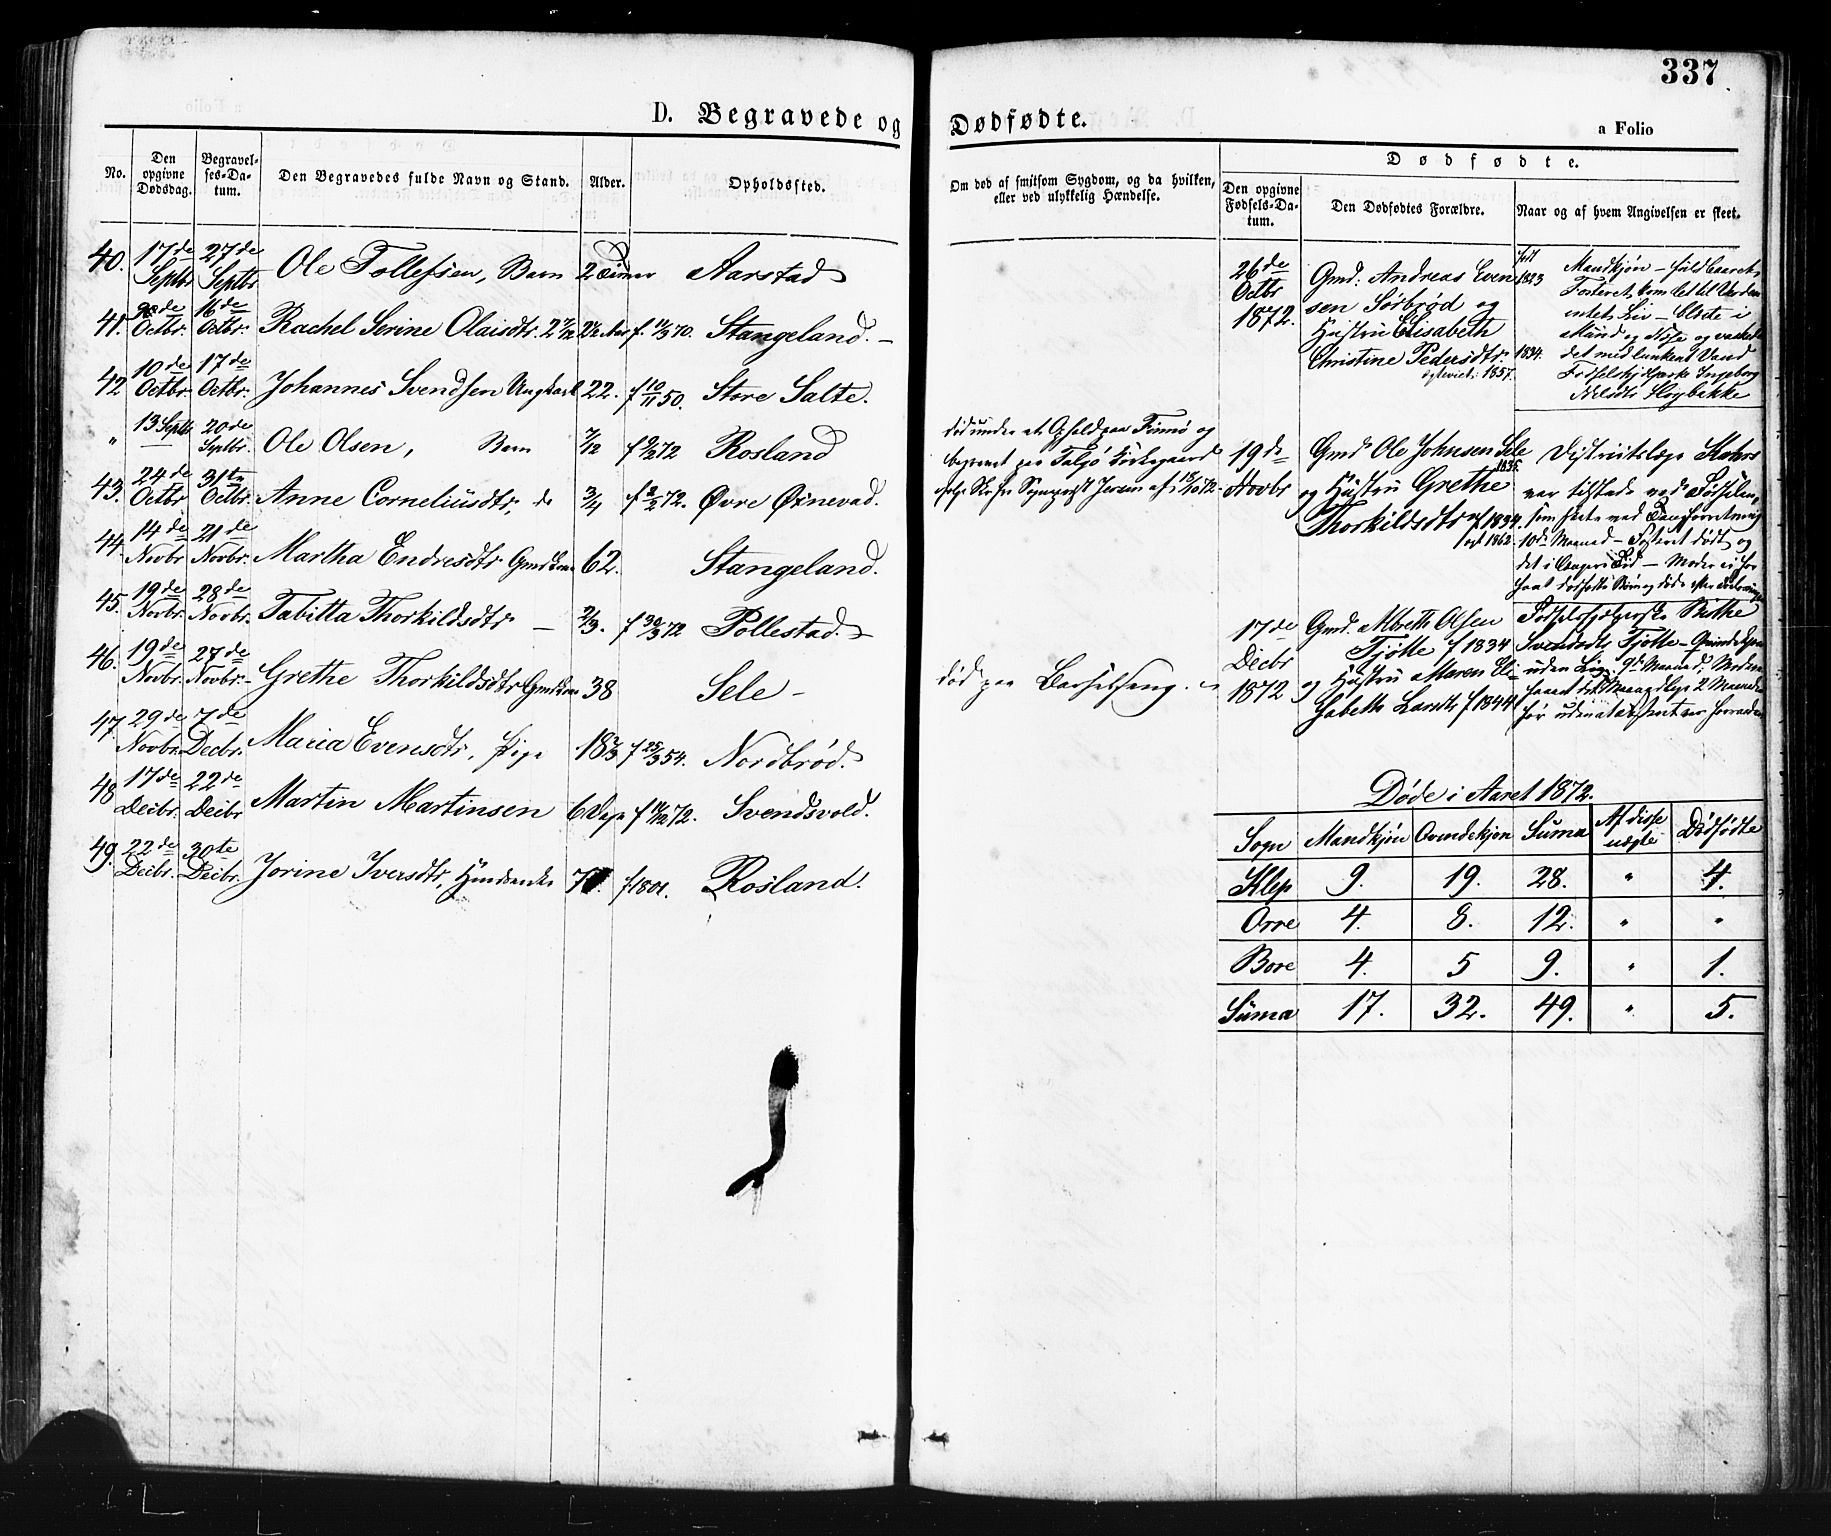 337.
D. Begravede og Dødfødte.
a Folio
No.
Den opgivne Dødsdag.
Begravelses-Datum.
Den Begravedes fulde Navn og Stand.
Alder.
Opholdssted.
Om død af smitsom Sygdom, og da hvilken, eller ved ulykkelig Hændelse.
Dødfødte.
Den opgivne Fødsels-Datum.
Den Dødfødtes Forældre.
Naar og af hvem Angivelsen er skeet.
40. 17de Septbr 27de Septbr Ole Tollefsen, Barn 2 Timer Aarstad
41. Octbr. 16de Octbr. Rachel Serine Olaisdtr. 2 7/12 Aar f. 11/3 70. Stangeland. –
42 10de Octbr. 17de Octbr. Johannes Svendsen Ungkarl 22. f 10/11 50. Store Salte.
" 13 Septbr 20de Septbr. Ole Olsen, Barn 7/12 f 9/2 72 Rosland
død under et Ophold paa Finnø og
begravet paa Talgø Kirkegaard
43. 24de Octbr 31te Octbr. Anne Corneliusdtr, do 3/4 f 2/2 72. Øvre Øxnevad.
44. 14de Novbr 21de Novbr. Martha Endresdtr Gmdkone 62. Stangeland.
45. 19de Novbr. 28de Novbr. Tabitta Thorkildsdtr – 2/3. f 30/3 72 Pollestad. –
46. 19de Novbr. 27de Novbr. Grethe Thorkildsdtr Gmdkone 38 Sele –
død paa Barselseng.
47. 29de Novbr. 7de Decbr. Maria Evensdtr, Pige 18 2/3 f 25/3 54. Nordbrød.
48 17de Decbr. 22de Decbr Martin Martinsen 6 Dage f 11/12 72. Svendsvold.
49. 22de Decbr. 30te Decbr. Jorine Iversdtr, 71 f 1801. Rosland.
26de Octbr 1872.
Gmd. Andreas Evensen Sørbrød og
født 1823
Hustru Elisabeth
Christine Pedersdtr 1834.
1857.
Mandkjøn – fuldbaaret
Fosteret kom let til Verden
uden Liv –
Mund og Næse og vaskede
det med lunkent Vand
Ingeborg
Nilsdtr Høybakke
19de Novbr
Gmd Ole Johnsen Sele
1835.
og Hustru Grethe
Thorkildsdtr f 1834.
1862.
Distriktslæge
var tilstede ved Fødselen,
som skete ved Tangforretning
10de Maaned – Fosteret dødt og
17de Decbr 1872
Gmd. Albreth Olsen
Tjøtte f 1834
og Hustru Maren Elisabeth Larsdtr f 1844
Birthe
Svendsdtr Tjøtte – Qvindekjøn
uden Liv, 9de Maaned. Moderen
2 Maaneder
Døde i Aaret 1872.
Sogn Mandkjøn Qvindekjøn Suma Af disse uægte Dødfødte
Klep 9. 19. 28. " 4.
Orre 4. 8. 12. " "
Bore 4. 5 9. " 1.
Suma 17. 32. 49. " 5.